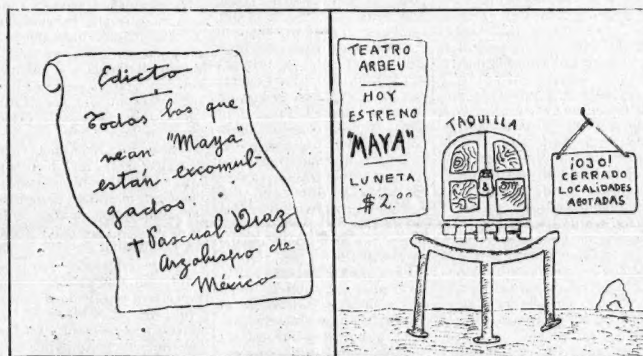 Edicto
Todos los que
vean "Maya"
están excomul-
gados.
+ Pascual Díaz
Arzobispo de
México
TEATRO
ARBEU
HOY
ESTRENO
"MAYA"
LUNETA
$2.00
TAQUILLA
¡OJO!
CERRADO
LOCALIDADES
AGOTADAS